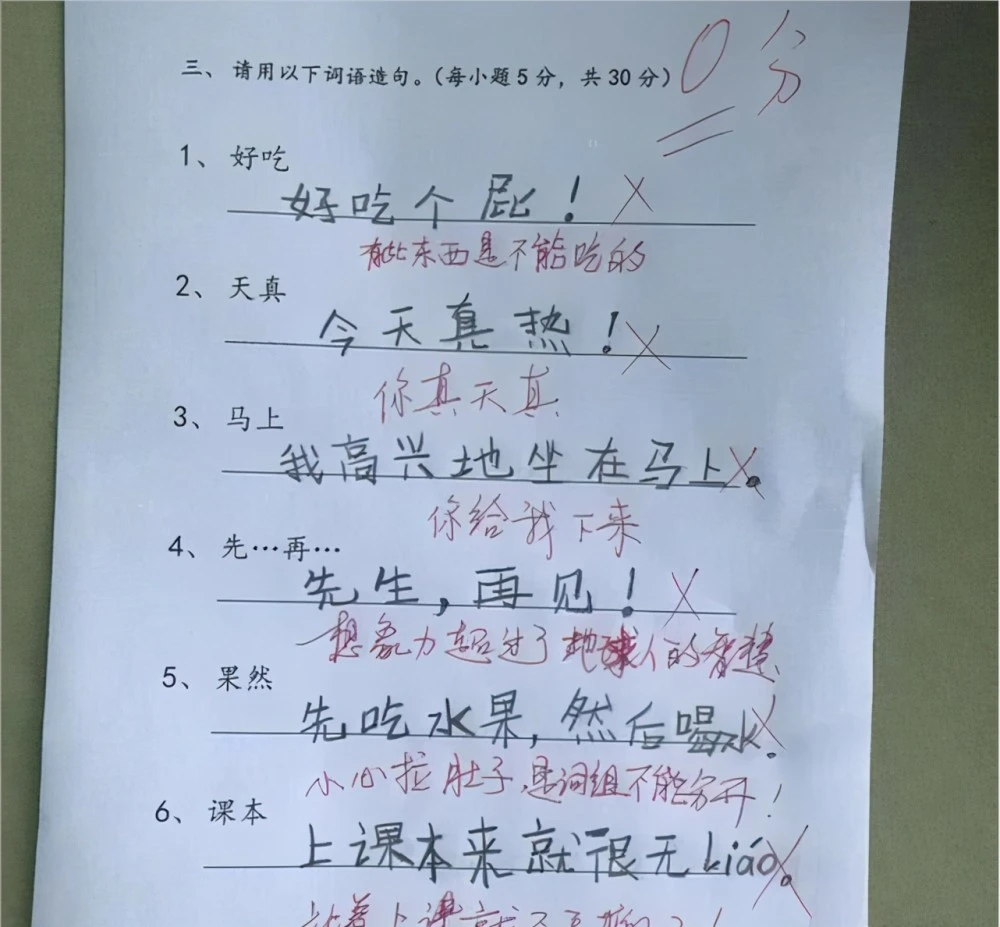 三、请用以下词语造句。（每小题5分，共30分）
0分
1、好吃
好吃个屁！
有些东西是不能吃的
2、天真
今天真热！
你真天真
3、马上
我高兴地坐在马上。
你给我下来
4、先…再…
先生，再见！
想象力超过了地球人的智慧
5、果然
先吃水果，然后喝水。
小心拉肚子，是词组不能分开！
6、课本
上课本来就很无liáo。
上课就